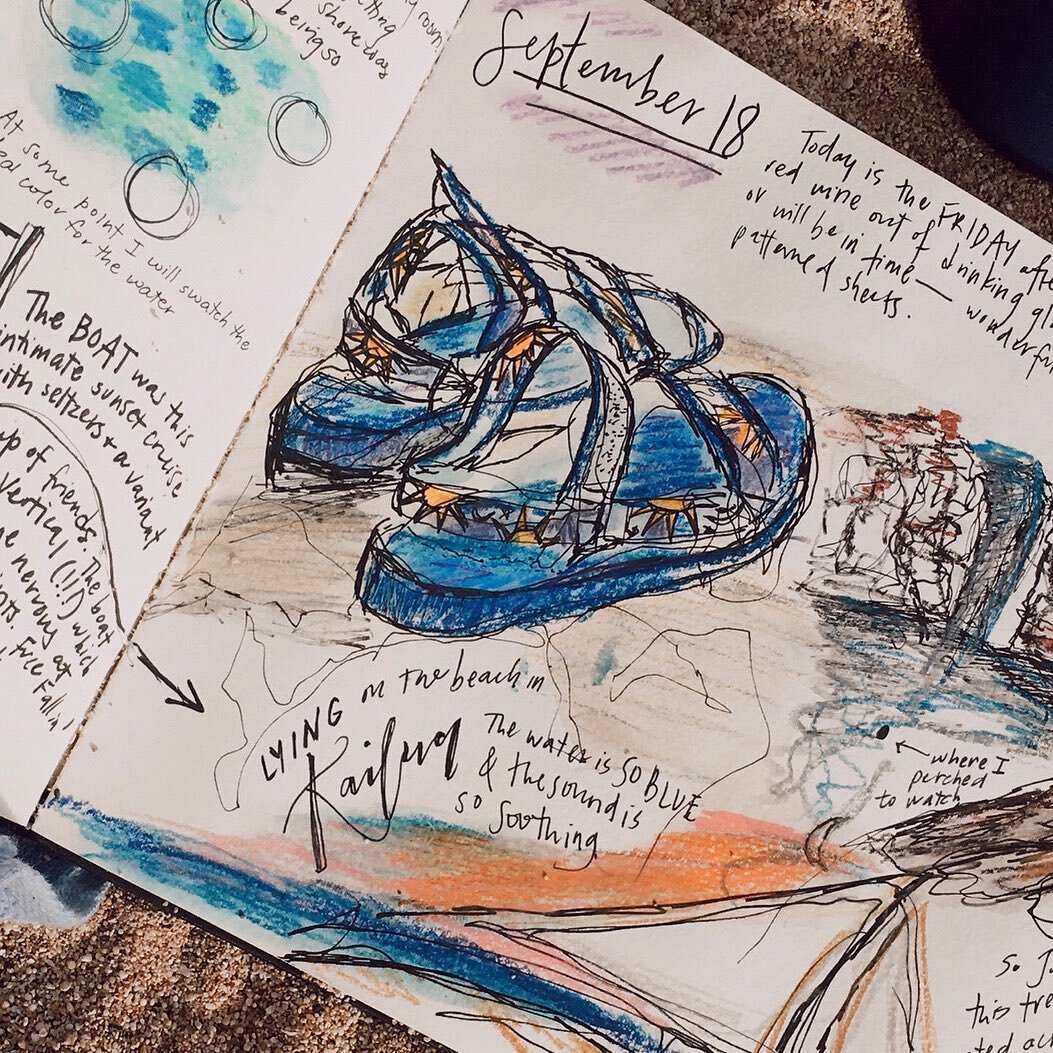 being so
shore was
At some point I will swatch the
real color for the water
The BOAT was this
intimate sunset cruise
with seltzers + a variant
of friends. The boat
vertical (!!!) which
nervous at
Free Fallin'
September 18
Today is the FRIDAY
red wine out of drinking
or will be in time — wonderful
patterned sheets.
LYING on the beach in
Kailua
The water is SO BLUE
& the sound is
so soothing
where I
perched
to watch
So
this